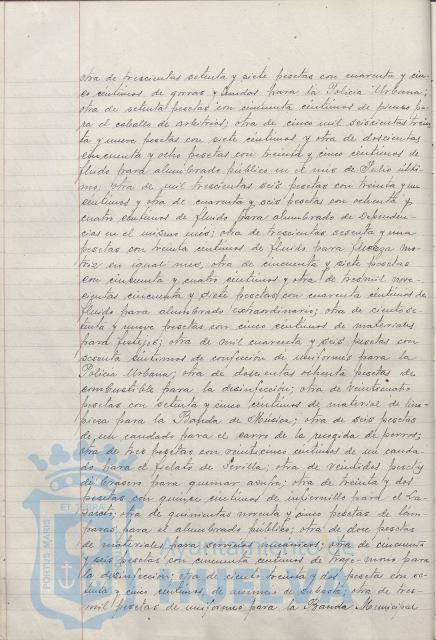 otra de trescientas setenta y siete pesetas con cuarenta y cin-
co centimos de gorras y fundas para la Policia Urbana;
otra de setenta pesetas con cincuenta centimos de pienso pa-
ra el caballo de arbitrios; otra de cinco mil seiscientas trein-
ta y nueve pesetas con siete centimos y otra de doscientas
cincuenta y ocho pesetas con treinta y cinco centimos de
fluido para alumbrado público en el mes de Julio últi-
mo; otra de mil trescientas seis pesetas con treinta y un
centimos y otra de cuarenta y seis pesetas con ochenta y
cuatro centimos de fluido para alumbrado de Dependen-
cias en el mismo mes; otra de trescientas sesenta y una
pesetas con treinta centimos de fluido para fuerza mo-
triz en igual mes, otra de cincuenta y siete pesetas
con cincuenta y cuatro centimos y otra de tres mil nove-
cientas cincuenta y siete pesetas con cuarenta centimos de
fluido para alumbrado extraordinario; otra de ciento se-
tenta y nueve pesetas con cinco centimos de materiales
para festejos; otra de mil cuarenta y seis pesetas con
sesenta centimos de confección de uniformes para la
Policia Urbana; otra de doscientas ochenta pesetas de
combustible para la desinfección; otra de veinticuatro
pesetas con setenta y cinco centimos de material de lim-
pieza para la Banda de Música; otra de seis pesetas
de un candado para el carro de la recogida de perros;
otra de tres pesetas con veinticinco centimos de un canda-
do para el fielato de Sevilla; otra de veintidos pesetas
de brasero para quemar azufre; otra de treinta y dos
pesetas con quince centimos de infiernillo para el La-
zareto; otra de quinientas noventa y cinco pesetas de lám-
paras para el alumbrado público; otra de doce pesetas
de materiales para servicios mecánicos; otra de cincuenta
y seis pesetas con cincuenta centimos de traje mono para
la desinfección; otra de ciento treinta y dos pesetas con se-
tenta y cinco centimos de anuncios de subasta; otra de tres
mil pesetas de uniformes para la Banda Municipal
PORTUS MARIS
ET TERRAE
Ayuntamiento de
HUELVA